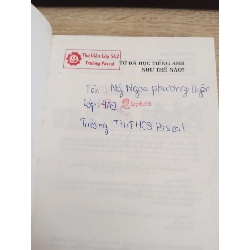 Thư Viện Lớp 5A2
Trường Pascal
TỚ ĐÃ HỌC TIẾNG ANH
NHƯ THẾ NÀO?
Tên: Ngọc phương
Lớp:
Trường THCS Pascal